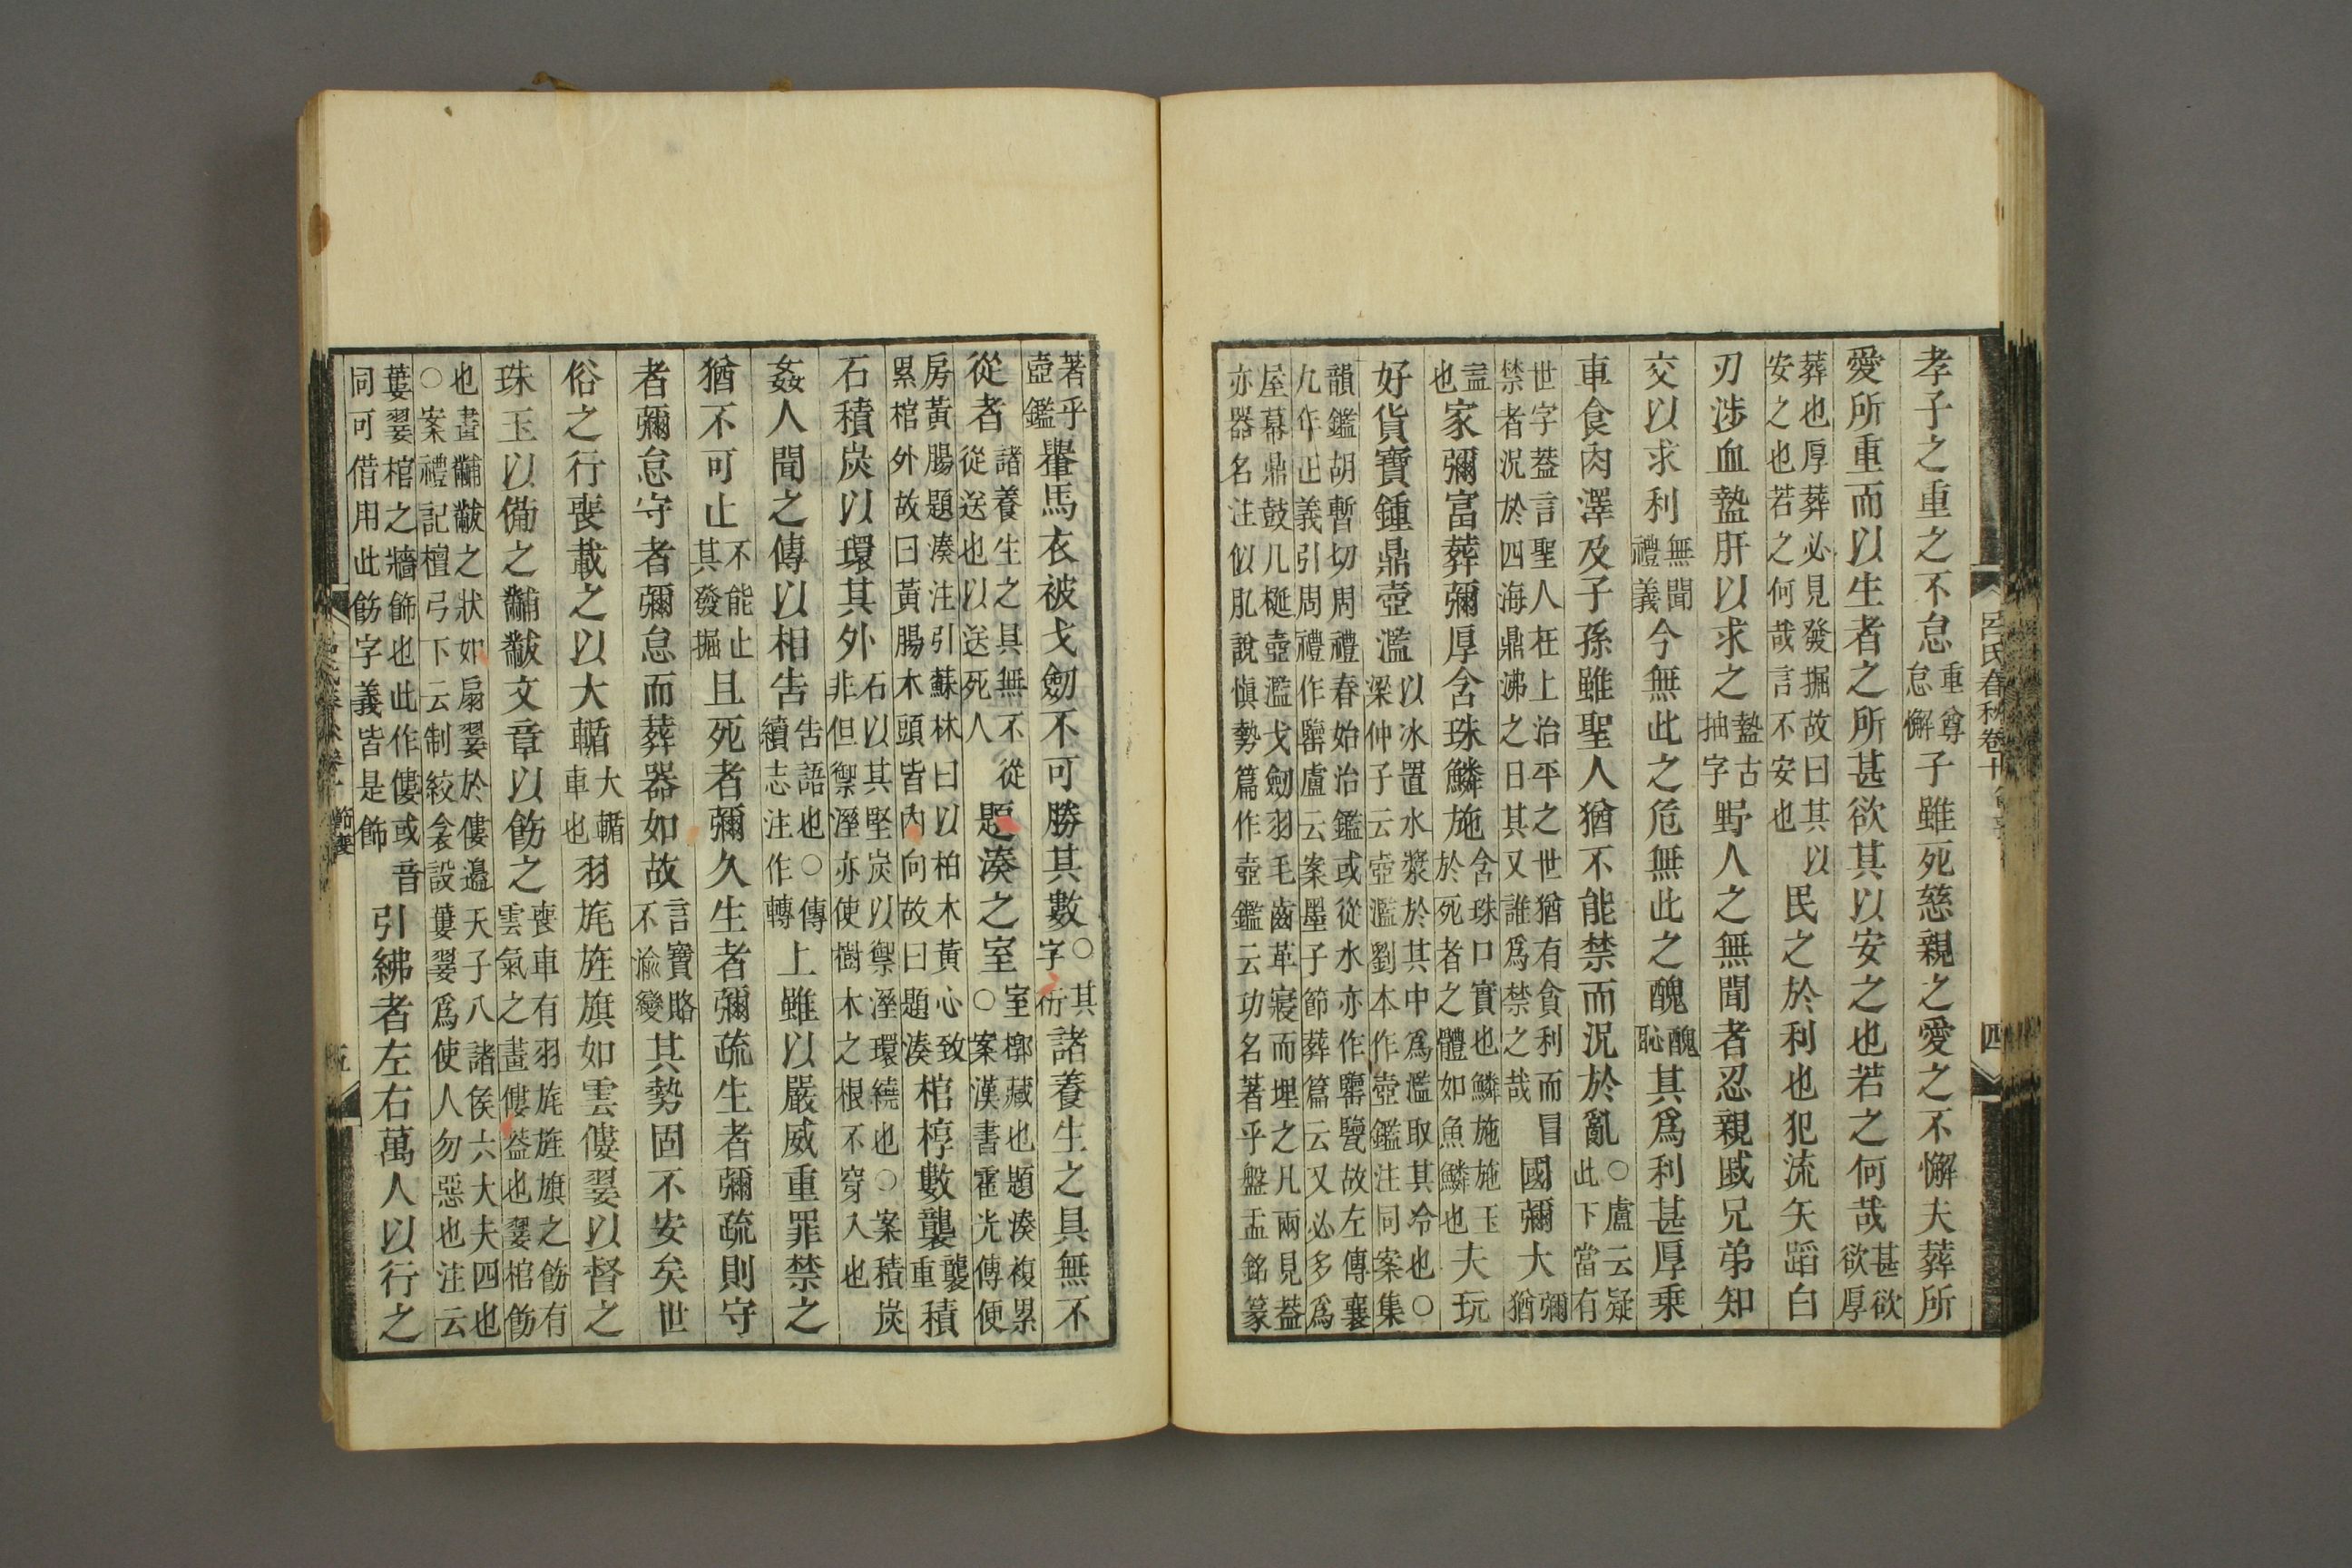 呂氏春秋卷十 四
孝子之重之不怠重尊怠懈子雖死慈親之愛之不懈夫葬所
愛所重而以生者之所甚欲其以安之也若之何哉甚欲欲厚
葬也厚葬必見發掘故曰其以安之也若之何哉言不安也民之於利也犯流矢蹈白
刃涉血盩肝以求之盩古抽字野人之無聞者忍親戚兄弟知
交以求利無聞禮義今無此之危無此之醜醜恥其爲利甚厚乘
車食肉澤及子孫雖聖人猶不能禁而況於亂○盧云疑此下當有
世字葢言聖人在上治平之世猶有貪利而冒禁者況於四海鼎沸之日其又誰爲禁之哉國彌大彌猶
益也家彌富葬彌厚含珠鱗施含珠口實也鱗施施玉於死者之體如魚鱗也夫玩
好貨寶鍾鼎壺濫以冰置水漿於其中爲濫取其冷也○梁仲子云壺濫劉本作壺鑑注同案集
韻鑑胡暫切周禮春始治鑑或從水亦作鑒覽故左傳襄九年正義引周禮作鑒盧云案墨子節葬篇云又必多爲
屋幕鼎鼓几梴壺濫戈劒羽毛齒革寢而埋之凡兩見葢亦器名注似肊說愼勢篇作壺鑑云功名著乎盤盂銘篆
著乎壺鑑轝馬衣被戈劒不可勝其數○其字衍諸養生之具無不
從者諸養生之具無不從從送也以送死人題湊之室室槨藏也題湊複累○案漢書霍光傳便
房黃腸題湊注引蘇林曰以柏木黃心致累棺外故曰黃腸木頭皆內向故曰題湊棺椁數襲襲重積
石積炭以環其外石以其堅炭以禦溼環繞也○案積炭非但禦溼亦使樹木之根不穿入也
姦人聞之傳以相告告語也○傳續志注作轉上雖以嚴威重罪禁之
猶不可止不能止其發掘且死者彌久生者彌疏生者彌疏則守
者彌怠守者彌怠而葬器如故言寶賂不渝變其勢固不安矣世
俗之行喪載之以大輴大輴車也羽旄旌旗如雲僂翣以督之
珠玉以備之黼黻文章以飭之喪車有羽旄旌旗之飭有雲氣之畫僂葢也翣棺飭
也畫黼黻之狀如扇翣於僂邊天子八諸侯六大夫四也○案禮記檀弓下云制絞衾設蔞翣爲使人勿惡也注云
蔞翣棺之牆飾也此作僂或音同可借用此飭字義皆是飾引紼者左右萬人以行之
節喪 五